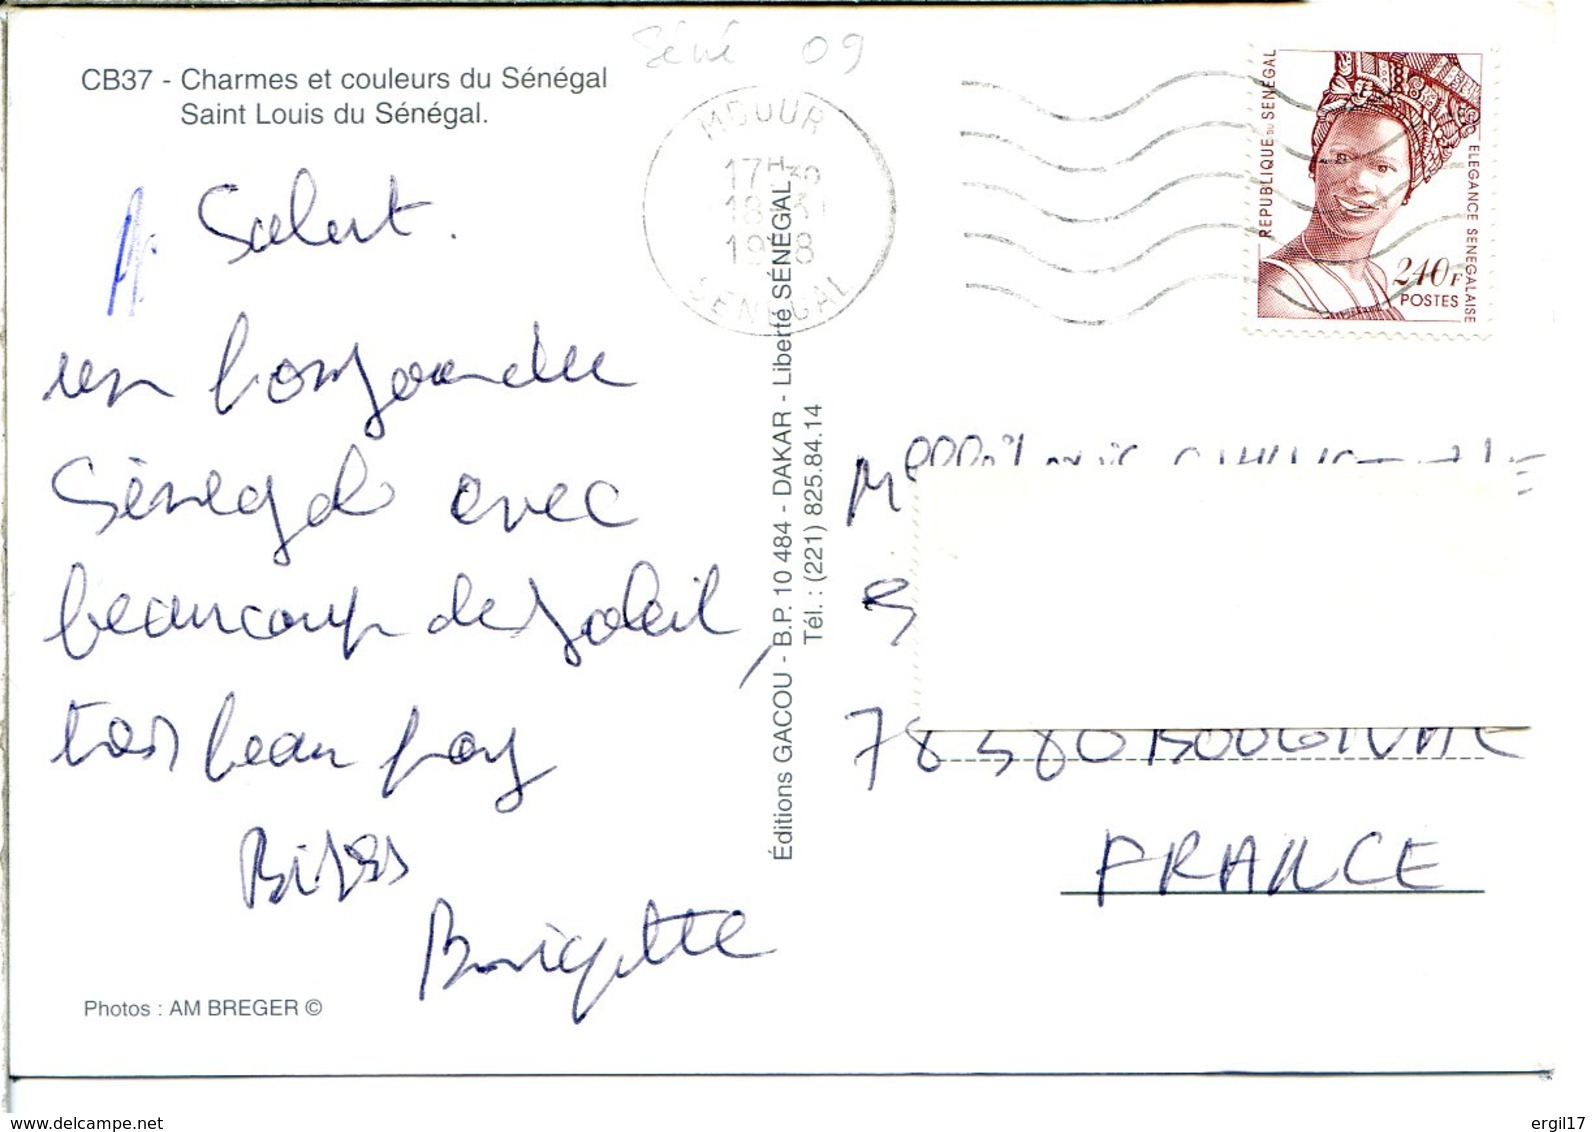 Séné 09
CB37 - Charmes et couleurs du Sénégal
Saint Louis du Sénégal.
MBOUR
17H
SENEGAL
REPUBLIQUE DU SENEGAL
ELEGANCE SENEGALAISE
240F
POSTES
Salut.
un bonjour du
Sénégal avec
beaucoup de soleil,
très beau pay
Bises
Brigitte
Photos : AM BREGER ©
Éditions GACOU - B.P. 10 484 - DAKAR - Liberté SÉNÉGAL
Tél. : (221) 825.84.14
78380 BOUGIVAL
FRANCE
www.delcampe.net
ergil17